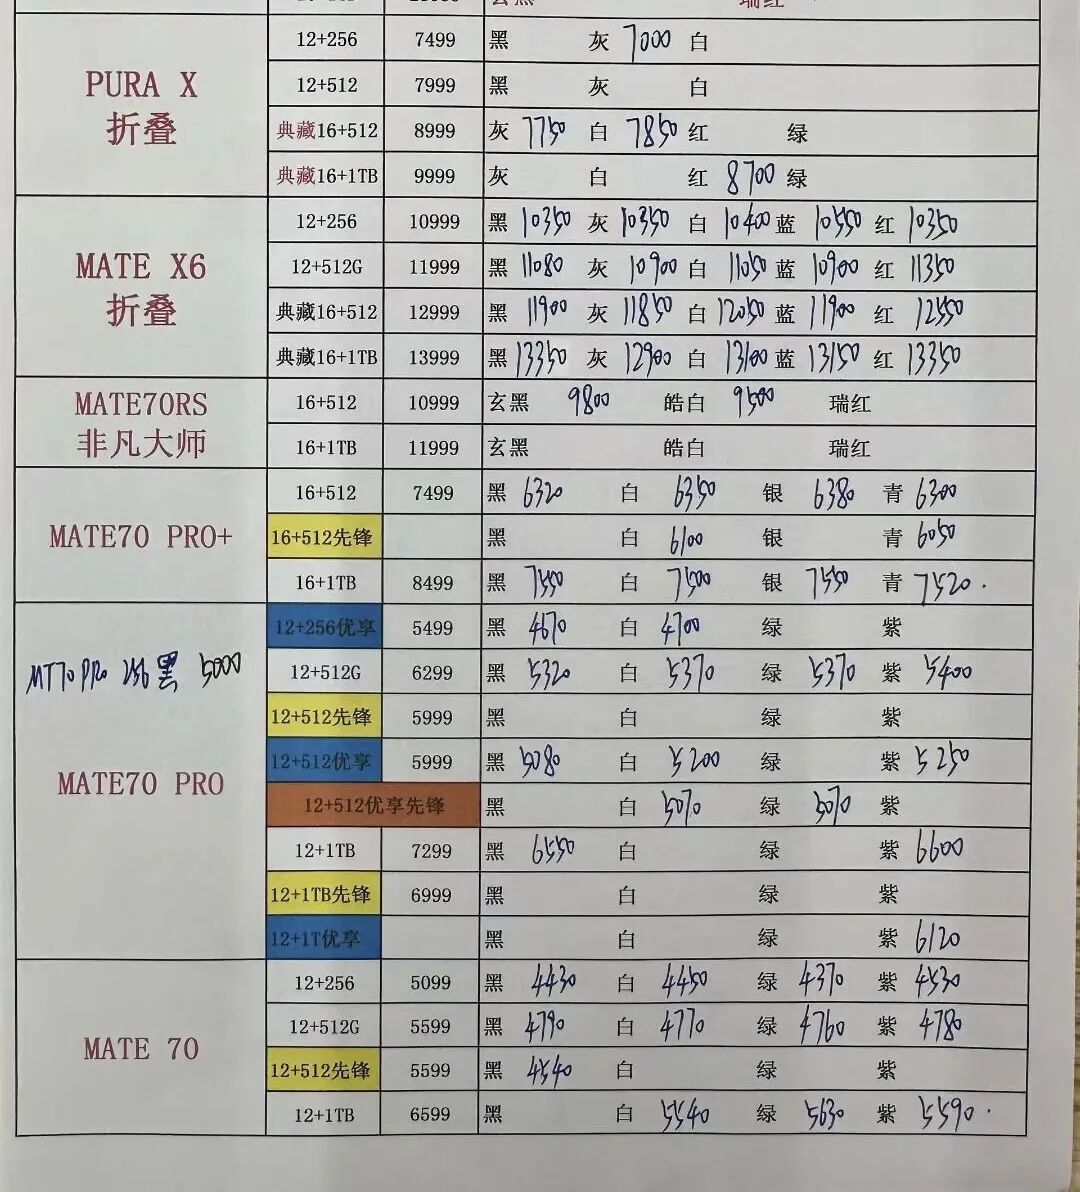 瑞红
12+256 7499 黑 灰 7000 白
PURA X
折叠
12+512 7999 黑 灰 白
典藏16+512 8999 灰 7750 白 7850 红 绿
典藏16+1TB 9999 灰 白 红 8700 绿
MATE X6
折叠
12+256 10999 黑 10350 灰 10350 白 10400 蓝 10550 红 10350
12+512G 11999 黑 11080 灰 10900 白 11050 蓝 10900 红 11350
典藏16+512 12999 黑 11900 灰 11850 白 12050 蓝 11900 红 12550
典藏16+1TB 13999 黑 13350 灰 12900 白 13100 蓝 13150 红 13350
MATE70RS
非凡大师
16+512 10999 玄黑 9800 皓白 9500 瑞红
16+1TB 11999 玄黑 皓白 瑞红
MATE70 PRO+
16+512 7499 黑 6320 白 6350 银 6380 青 6300
16+512先锋 黑 白 6100 银 青 6050
16+1TB 8499 黑 7550 白 7500 银 7550 青 7520.
12+256优享 5499 黑 4670 白 4700 绿 紫
MT70 PRO 256 黑 5000
12+512G 6299 黑 5320 白 5370 绿 5370 紫 5400
12+512先锋 5999 黑 白 绿 紫
MATE70 PRO
12+512优享 5999 黑 5080 白 5200 绿 紫 5250
12+512优享先锋 黑 白 5070 绿 5070 紫
12+1TB 7299 黑 6550 白 绿 紫 6600
12+1TB先锋 6999 黑 白 绿 紫
12+1T优享 黑 白 绿 紫 6120
MATE 70
12+256 5099 黑 4430 白 4450 绿 4370 紫 4530
12+512G 5599 黑 4790 白 4770 绿 4760 紫 4780
12+512先锋 5599 黑 4540 白 绿 紫
12+1TB 6599 黑 白 5540 绿 5630 紫 5590.